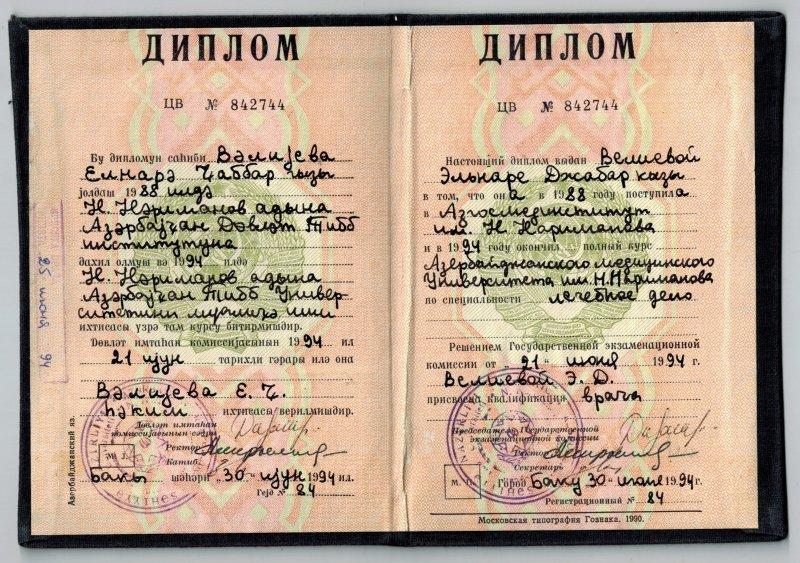 ДИПЛОМ
ЦВ № 842744
Бу дипломун саһиби Вәлијева
Елнарә Ҹаббар гызы
јолдаш 1988 илдә
Н. Нәриманов адына
Азәрбајҹан Дөвләт Тибб
институтуна
дахил олмуш вә 1994 илдә
Н. Нәриманов адына
Азәрбајҹан Тибб Универ-
ситетини мүалиҹә иши
ихтисасы үзрә там курсу битирмишдир.
Дөвләт имтаһан комиссијасынын 1994 ил
21 ијун тарихли гәрары илә она
Вәлијева Е. Ҹ.
һәким ихтисасы верилмишдир.
Дөвләт имтаһан
комиссијасынын сәдри
Ректор
Катиб
Бакы шәһәри „30" ијун 1994 ил.
Гејд № 84
Азербайджанский яз.
25 июня 94
ДИПЛОМ
ЦВ № 842744
Настоящий диплом выдан Велиевой
Эльнаре Джабар кызы
в том, что она в 1988 году поступила
в Азгосмединститут
им. Н. Нариманова
и в 1994 году окончил полный курс
Азербайджанского медицинского
Университета им. Н. Нариманова
по специальности лечебное дело
Решением Государственной экзаменационной
комиссии от „21" июня 1994 г.
Велиевой Э. Д.
присвоена квалификация врача
Председатель Государственной
экзаменационной комиссии
Ректор
Секретарь
М.
Город Баку 30 июня 1994 г.
Регистрационный № 84
Московская типография Гознака. 1990.